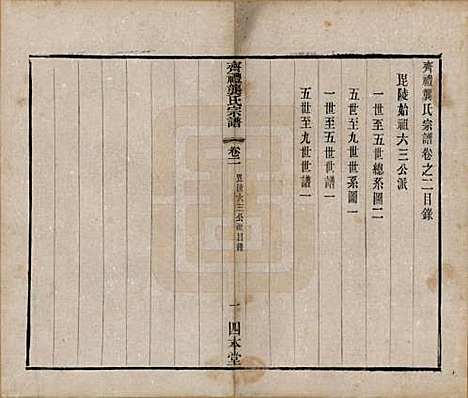 齊禮龔氏宗譜卷之二目錄
毘陵始祖六三公派
一世至五世總系圖二
五世至九世世系圖一
一世至五世世譜一
五世至九世世譜一
齊禮龔氏宗譜
卷二
六三公派目錄
一
四本堂